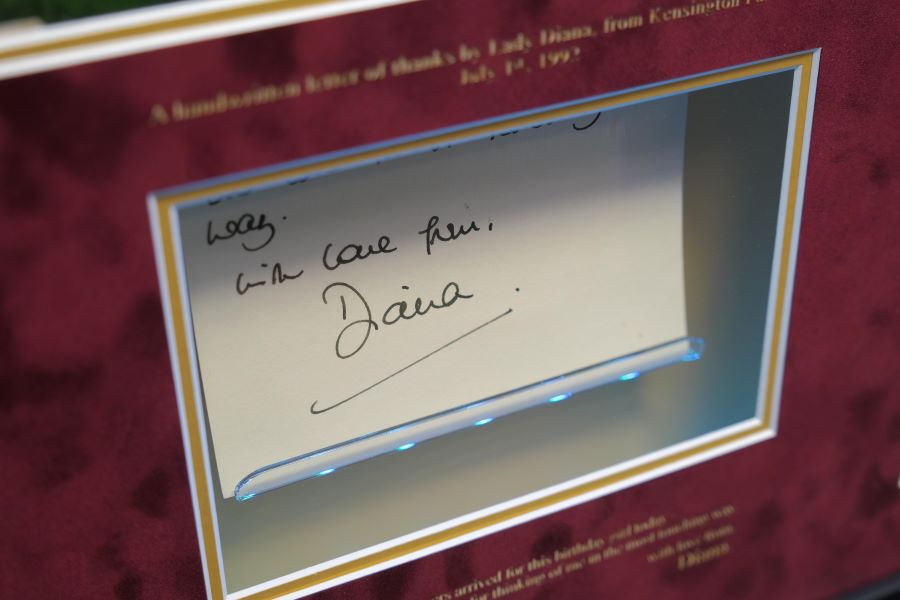 A handwritten letter of thanks by Lady Diana, from Kensington
July 1st, 1992
way.
with love from,
Diana.
arrived for this birthday girl today
for thinking of me in the most touching way
with love from
Diana